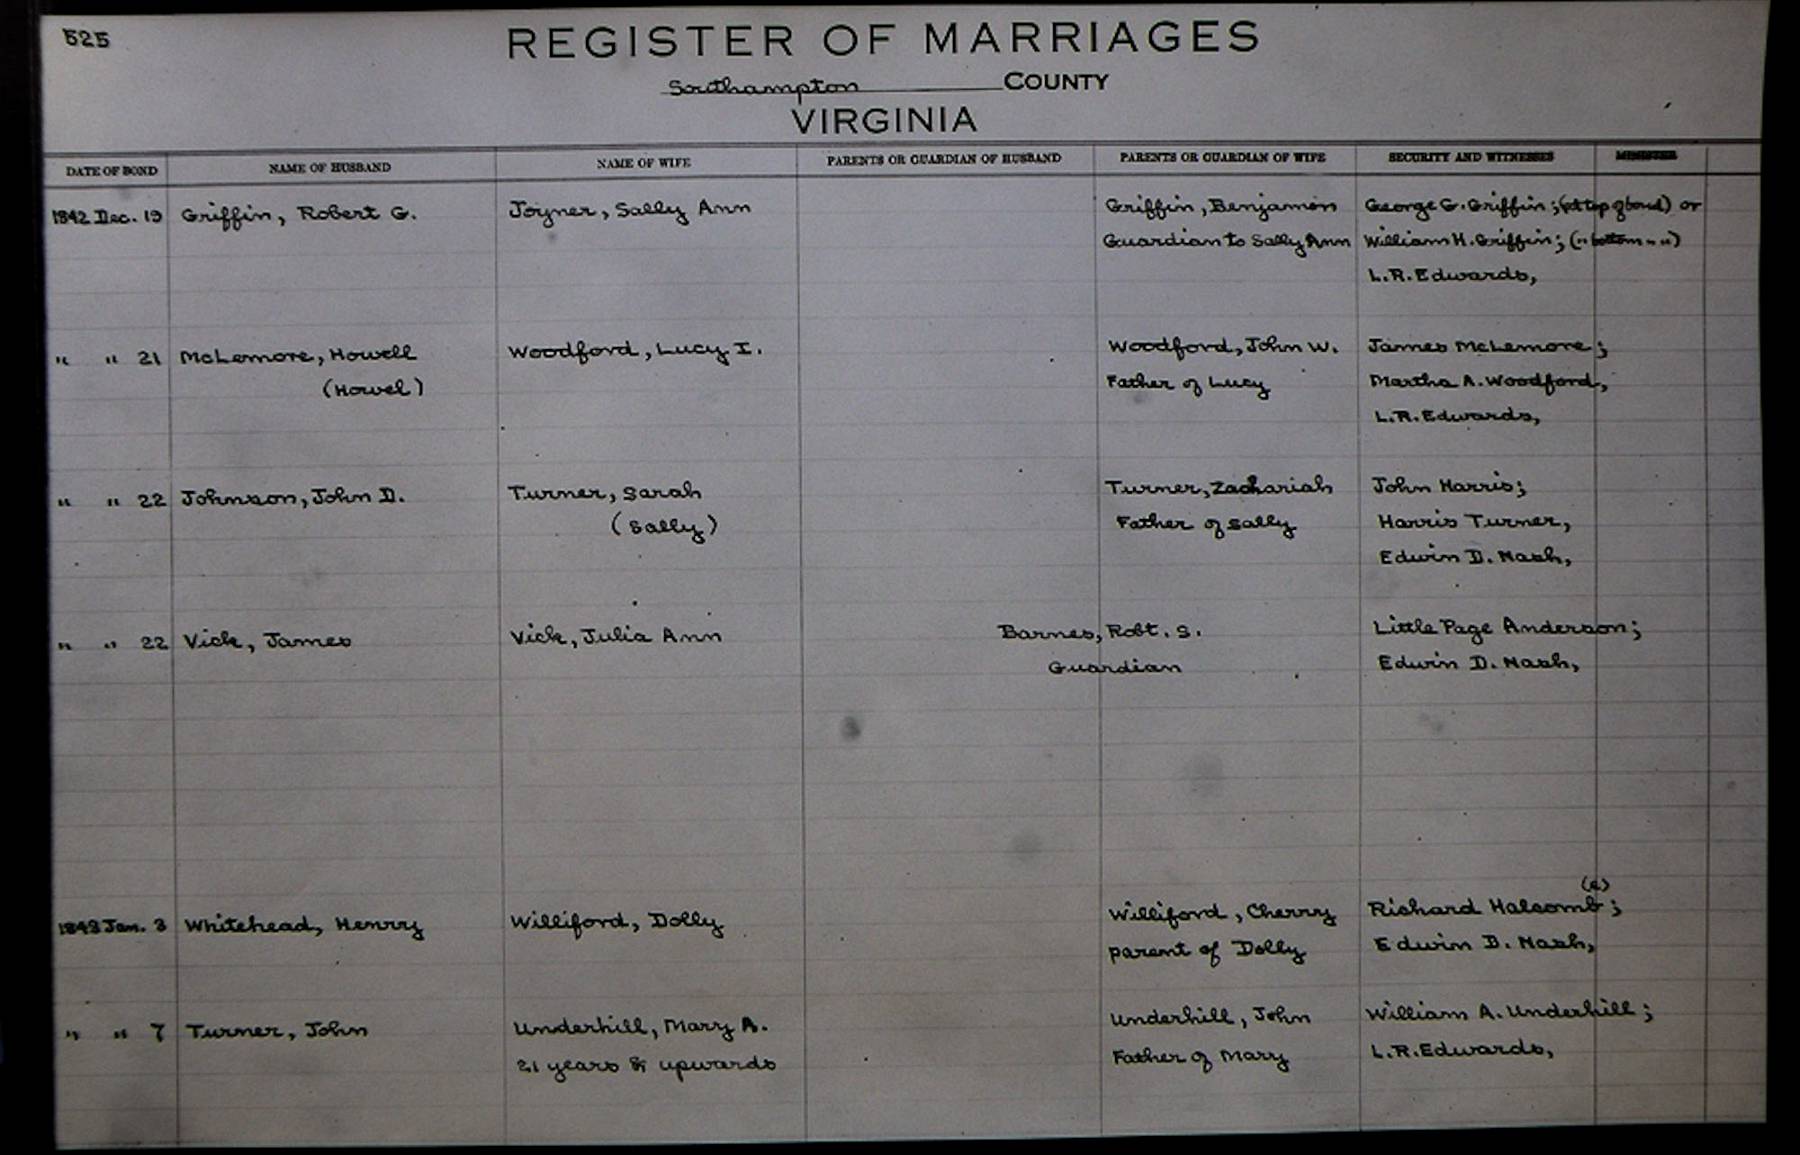 525
REGISTER OF MARRIAGES
Southampton COUNTY
VIRGINIA
DATE OF BOND NAME OF HUSBAND NAME OF WIFE PARENTS OR GUARDIAN OF HUSBAND PARENTS OR GUARDIAN OF WIFE SECURITY AND WITNESSES MINISTER
1842 Dec. 19 Griffin, Robert G. Joyner, Sally Ann Griffin, Benjamin George G. Griffin; (at top of bond) or
Guardian to Sally Ann William H. Griffin; (" bottom " ")
L.R. Edwards,
" " 21 McLemore, Howell Woodford, Lucy I. Woodford, John W. James McLemore;
(Howel) Father of Lucy Martha A. Woodford,
L.R. Edwards,
" " 22 Johnson, John D. Turner, Sarah Turner, Zachariah John Harris;
(Sally) Father of Sally Harris Turner,
Edwin D. Nash,
" " 22 Vick, James Vick, Julia Ann Barnes, Robt. S. Little Page Anderson;
Guardian Edwin D. Nash,
(e)
1843 Jan. 3 Whitehead, Henry Williford, Dolly Williford, Cherry Richard Halcomb;
parent of Dolly Edwin D. Nash,
" " 7 Turner, John Underhill, Mary A. Underhill, John William A. Underhill;
21 years & upwards Father of Mary L.R. Edwards,